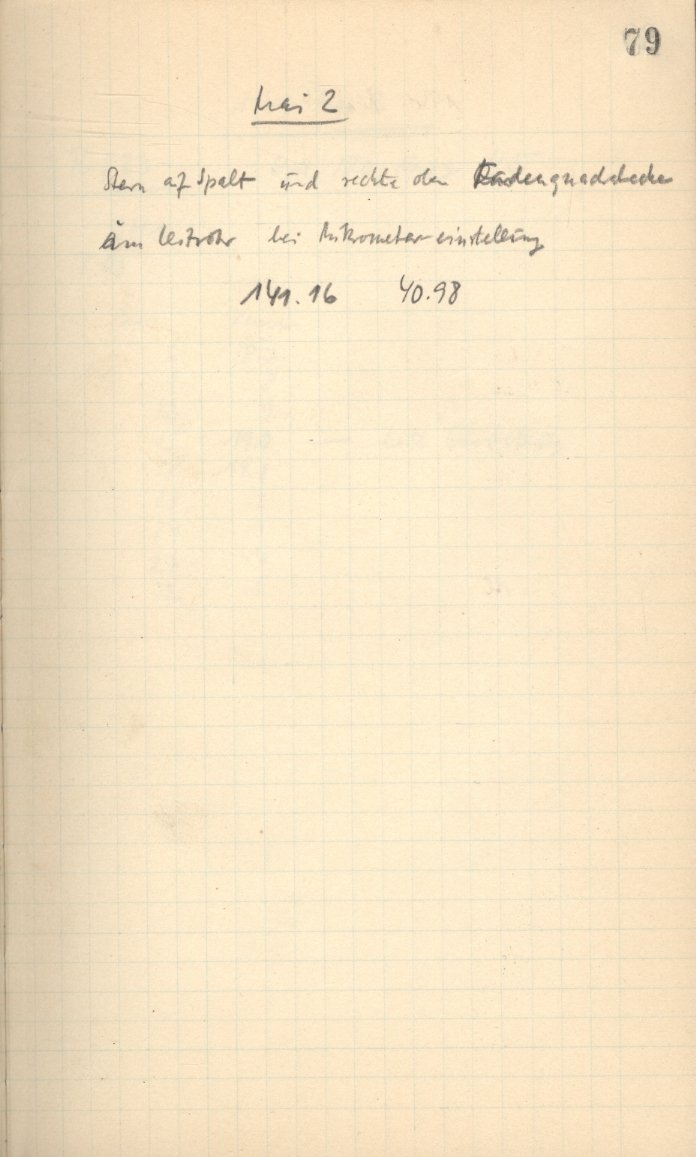 79
Mai 2
Stern auf Spalt und rechte obere Fadenquadratecke
im Leitrohr bei Mikrometer-einstellung
141.16 40.98